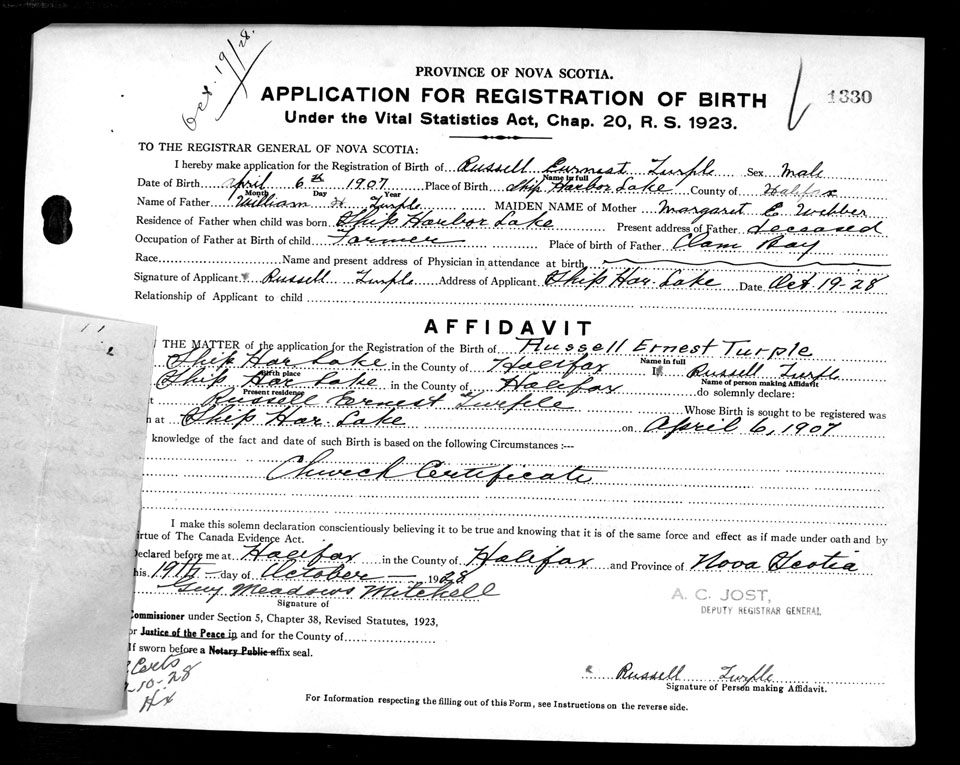 Oct. 19/28.
PROVINCE OF NOVA SCOTIA.
1330
APPLICATION FOR REGISTRATION OF BIRTH
Under the Vital Statistics Act, Chap. 20, R. S. 1923.
TO THE REGISTRAR GENERAL OF NOVA SCOTIA:
I hereby make application for the Registration of Birth of Russell Eurnest Turple Sex Male
Name in full
Date of Birth April 6th 1907 Place of Birth Ship Harbor Lake County of Halifax
Month Day Year
Name of Father William H Turple MAIDEN NAME of Mother Margaret E. Webber
Residence of Father when child was born Ship Harbor Lake Present address of Father deceased
Occupation of Father at Birth of child Farmer Place of birth of Father Clam Bay
Race Name and present address of Physician in attendance at birth
Signature of Applicant Russell Turple Address of Applicant Ship Har. Lake Date Oct. 19-28
Relationship of Applicant to child
AFFIDAVIT
THE MATTER of the application for the Registration of the Birth of Russell Ernest Turple
Name in full
Ship Har Lake in the County of Halifax I Russell Turple
Birth place Name of person making Affidavit
Ship Har Lake in the County of Halifax do solemnly declare:
Present residence
t Russell Ernest Turple Whose Birth is sought to be registered was
n at Ship Har. Lake on April 6, 1907
knowledge of the fact and date of such Birth is based on the following Circumstances :---
Church Certificate
I make this solemn declaration conscientiously believing it to be true and knowing that it is of the same force and effect as if made under oath and by
irtue of The Canada Evidence Act.
Declared before me at Halifax in the County of Halifax and Province of Nova Scotia
his 19th day of October 1928
Guy Meadows Mitchell
Signature of
A. C. JOST,
DEPUTY REGISTRAR GENERAL
Commissioner under Section 5, Chapter 38, Revised Statutes, 1923,
or Justice of the Peace in and for the County of
If sworn before a Notary Public affix seal.
Certs
-10-28
Hx
Russell Turple
Signature of Person making Affidavit.
For Information respecting the filling out of this Form, see Instructions on the reverse side.